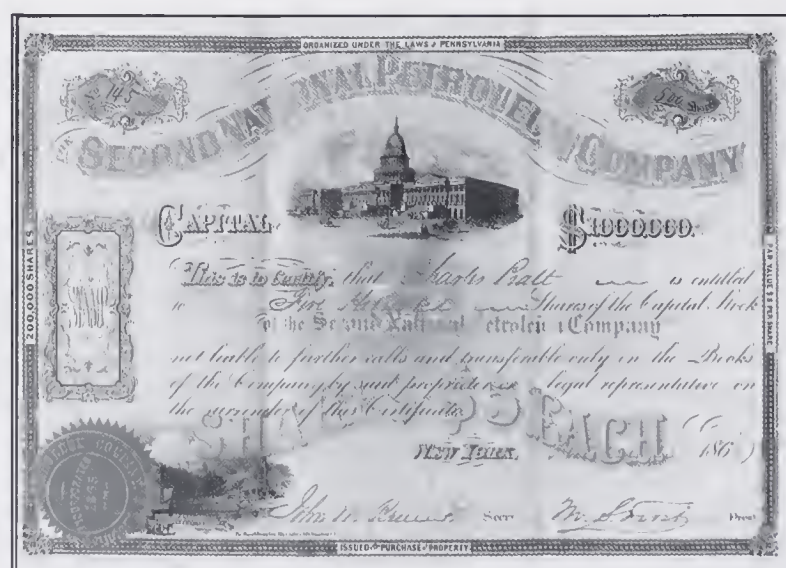 ORGANIZED UNDER THE LAWS OF PENNSYLVANIA
No 145
500 Shares
THE SECOND NATIONAL PETROLEUM COMPANY
CAPITAL $1000.000.
200,000 SHARES
PAR VALUE $5 PER SHARE
This is to Certify, that Charles Pratt is entitled
to Five Hundred Shares of the Capital Stock
of the Second National Petroleum Company
not liable to further calls and transferable only in the Books
of the Company by said proprietor or legal representative on
the surrender of this Certificate
SHARES $5 EACH
NEW YORK, 186
INCORPORATED
John Secy. Prest.
ISSUED FOR PURCHASE OF PROPERTY